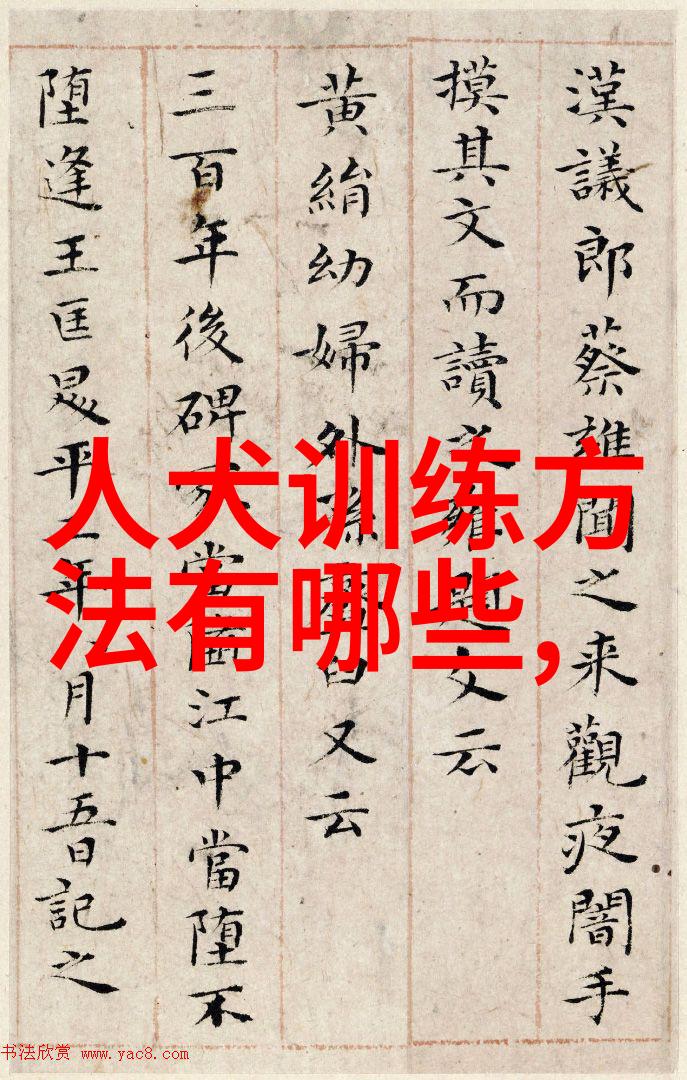 漢議郎蔡雍聞之来觀夜闇手
摸其文而讀之雍題文云
黄絹幼婦外孫韲臼又云
三百年後碑冢當堕江中當堕不
堕逢王匡昇平二年八月十五日記之
人犬训练方
法有哪些,
书法欣赏 www.yac8.com